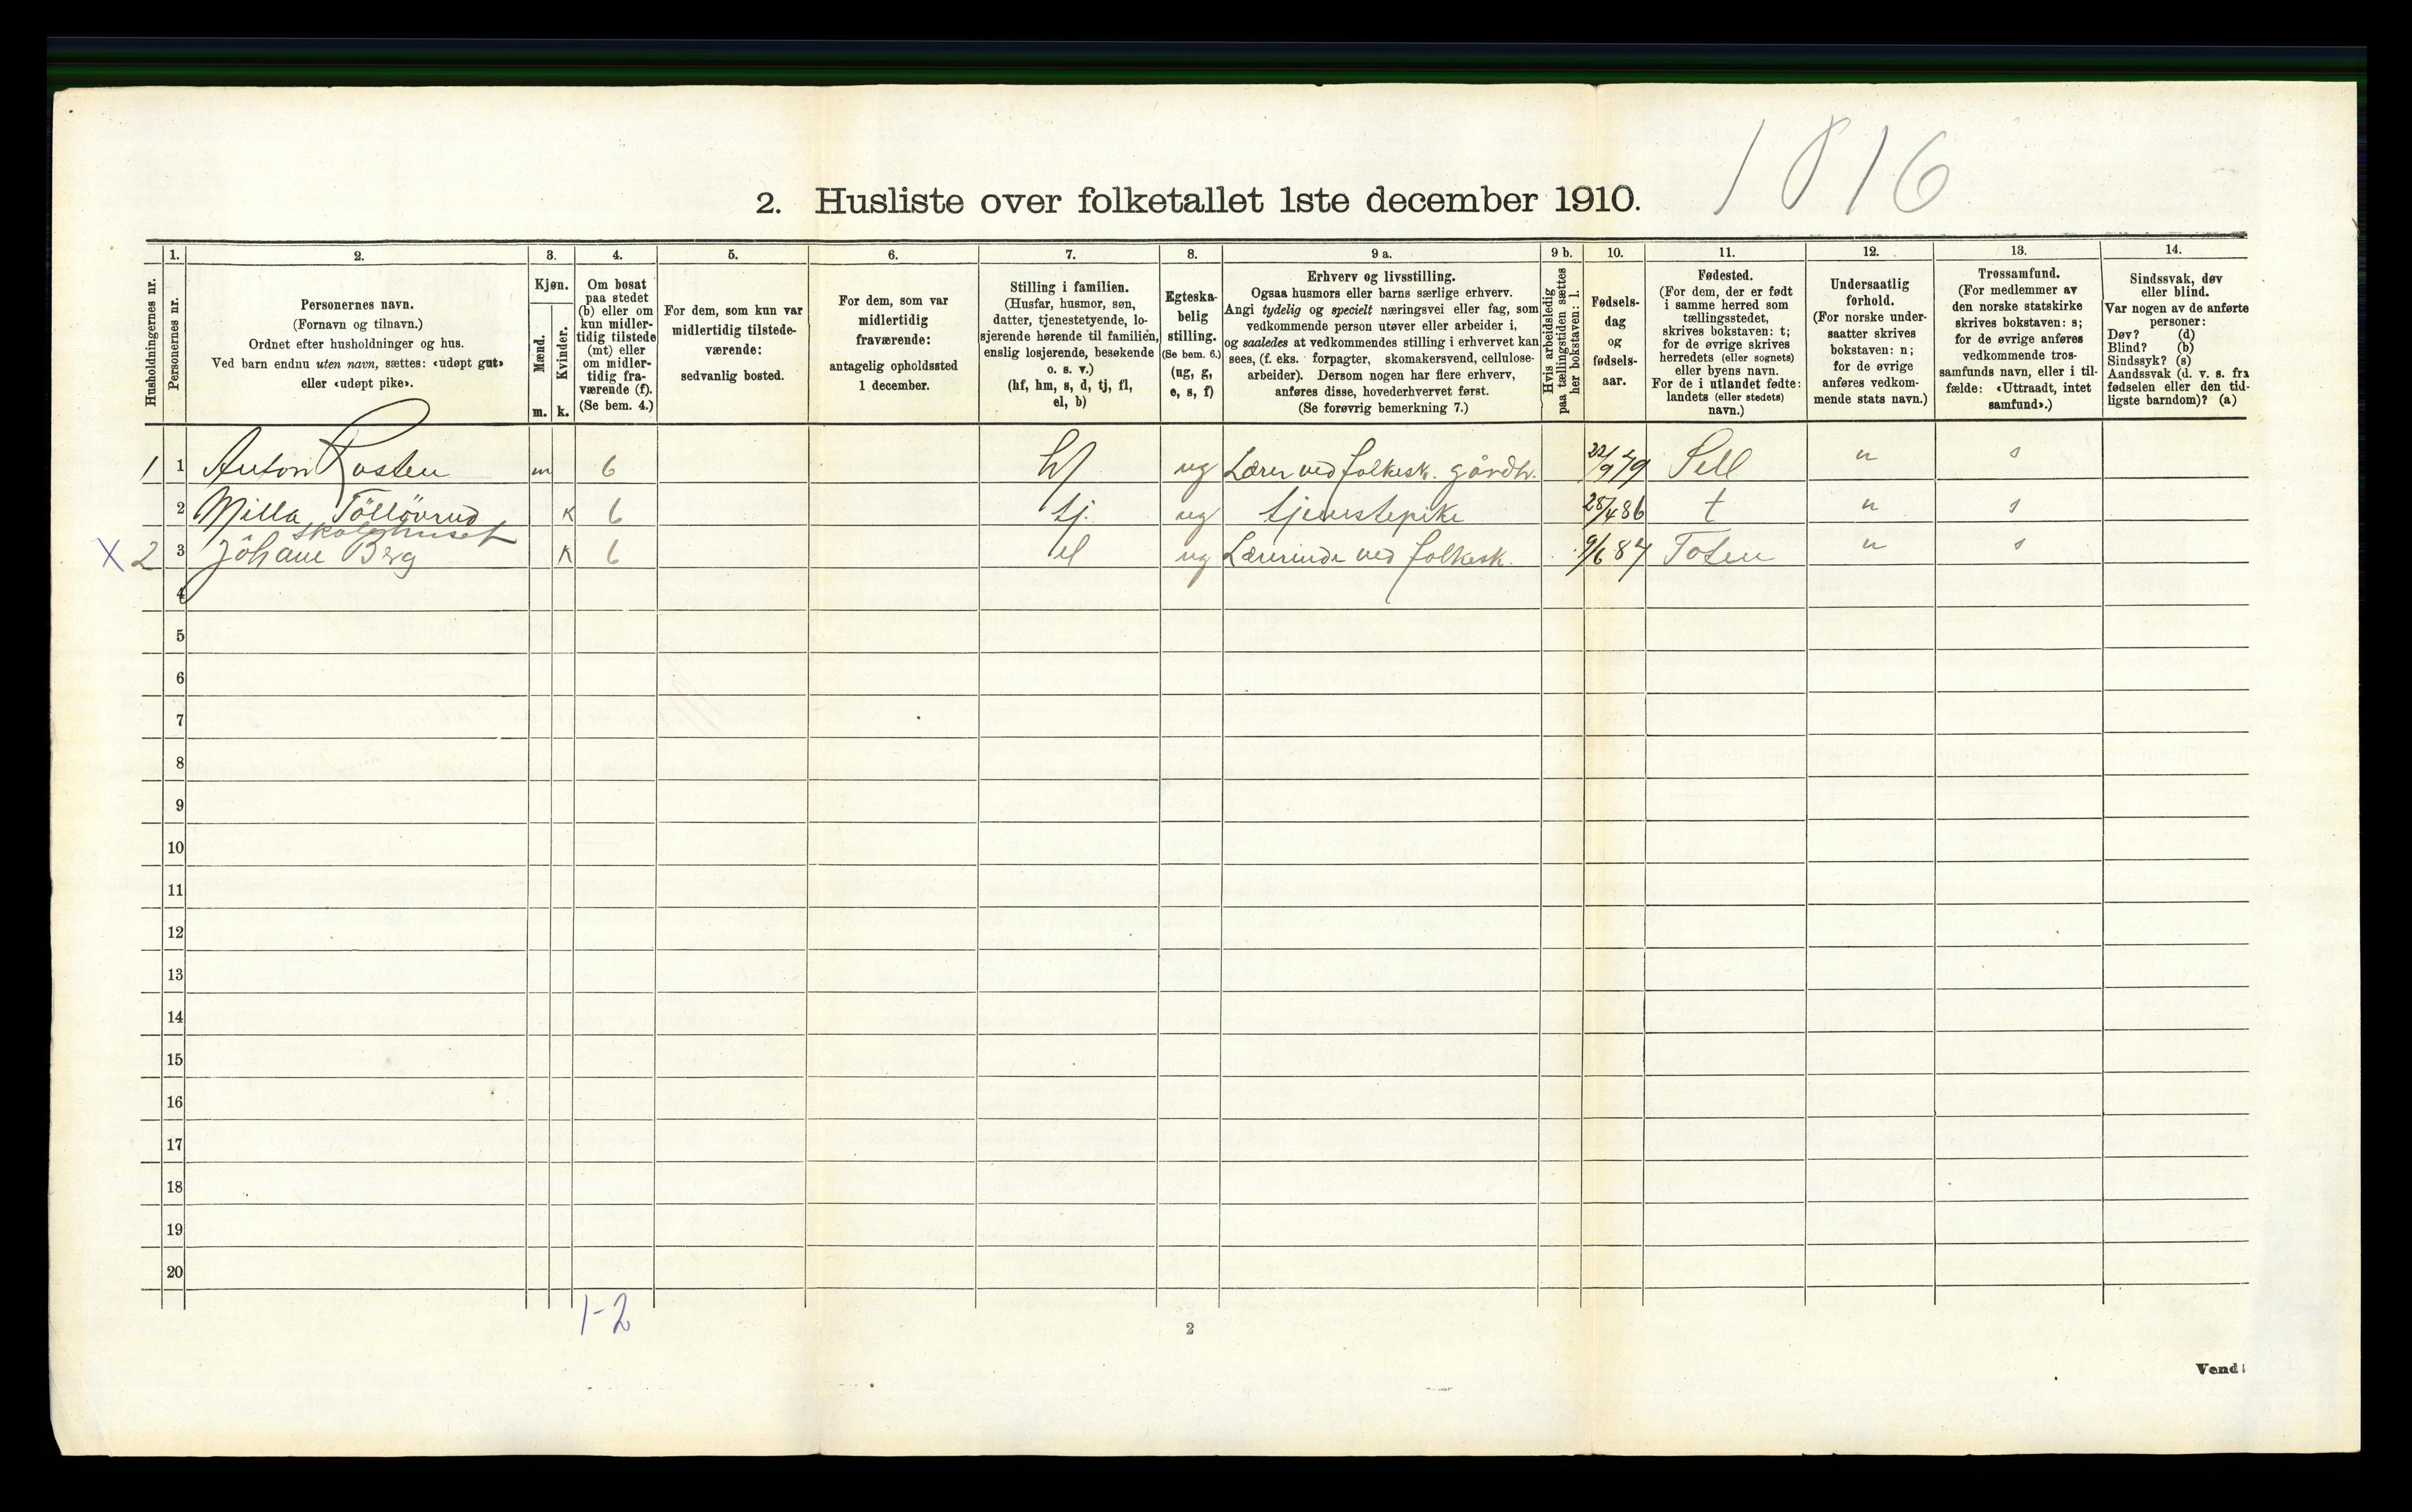 1816
2. Husliste over folketallet 1ste december 1910.
Husholdningernes nr.
1.
Personernes nr.
2.
Personernes navn.
(Fornavn og tilnavn.)
Ordnet efter husholdninger og hus.
Ved barn endnu uten navn, sættes: «udøpt gut»
eller «udøpt pike».
3.
Kjøn.
Mænd.
m.
Kvinder.
k.
4.
Om bosat
paa stedet
(b) eller om
kun midler-
tidig tilstede
(mt) eller
om midler-
tidig fra-
værende (f).
(Se bem. 4.)
5.
For dem, som kun var
midlertidig tilstede-
værende:
sedvanlig bosted.
6.
For dem, som var
midlertidig
fraværende:
antagelig opholdssted
1 december.
7.
Stilling i familien.
(Husfar, husmor, søn,
datter, tjenestetyende, lo-
sjerende hørende til familien,
enslig losjerende, besøkende
o. s. v.)
(hf, hm, s, d, tj, fl,
el, b)
8.
Egteska-
belig
stilling.
(Se bem. 6.)
(ug, g,
e, s, f)
9 a.
Erhverv og livsstilling.
Ogsaa husmors eller barns særlige erhverv.
Angi tydelig og specielt næringsvei eller fag, som
vedkommende person utøver eller arbeider i,
og saaledes at vedkommendes stilling i erhvervet kan
sees, (f. eks. forpagter, skomakersvend, cellulose-
arbeider). Dersom nogen har flere erhverv,
anføres disse, hovederhvervet først.
(Se forøvrig bemerkning 7.)
9 b.
Hvis arbeidsledig
paa tællingstiden sættes
her bokstaven: l.
10.
Fødsels-
dag
og
fødsels-
aar.
11.
Fødested.
(For dem, der er født
i samme herred som
tællingsstedet,
skrives bokstaven: t;
for de øvrige skrives
herredets (eller sognets)
eller byens navn.
For de i utlandet fødte:
landets (eller stedets)
navn.)
12.
Undersaatlig
forhold.
(For norske under-
saatter skrives
bokstaven: n;
for de øvrige
anføres vedkom-
mende stats navn.)
13.
Trossamfund.
(For medlemmer av
den norske statskirke
skrives bokstaven: s;
for de øvrige anføres
vedkommende tros-
samfunds navn, eller i til-
fælde: «Uttraadt, intet
samfund».)
14.
Sindssvak, døv
eller blind.
Var nogen av de anførte
personer:
Døv? (d)
Blind? (b)
Sindssyk? (s)
Aandssvak (d. v. s. fra
fødselen eller den tid-
ligste barndom)? (a)
1 1 Anton Rosten m b hf ug Lærer ved folkesk. gårdbr. 22/9 79 Sell n s
2 Milla Töllövrud k b tj. ug tjenstepike 28/4 86 t n s
skolehuset
X 2 3 Jöhane Berg k b el ug Lærerinde ved folkesk. 9/6 87 Toten n s
4
5
6
7
8
9
10
11
12
13
14
15
16
17
18
19
20
1-2
2
Vend!